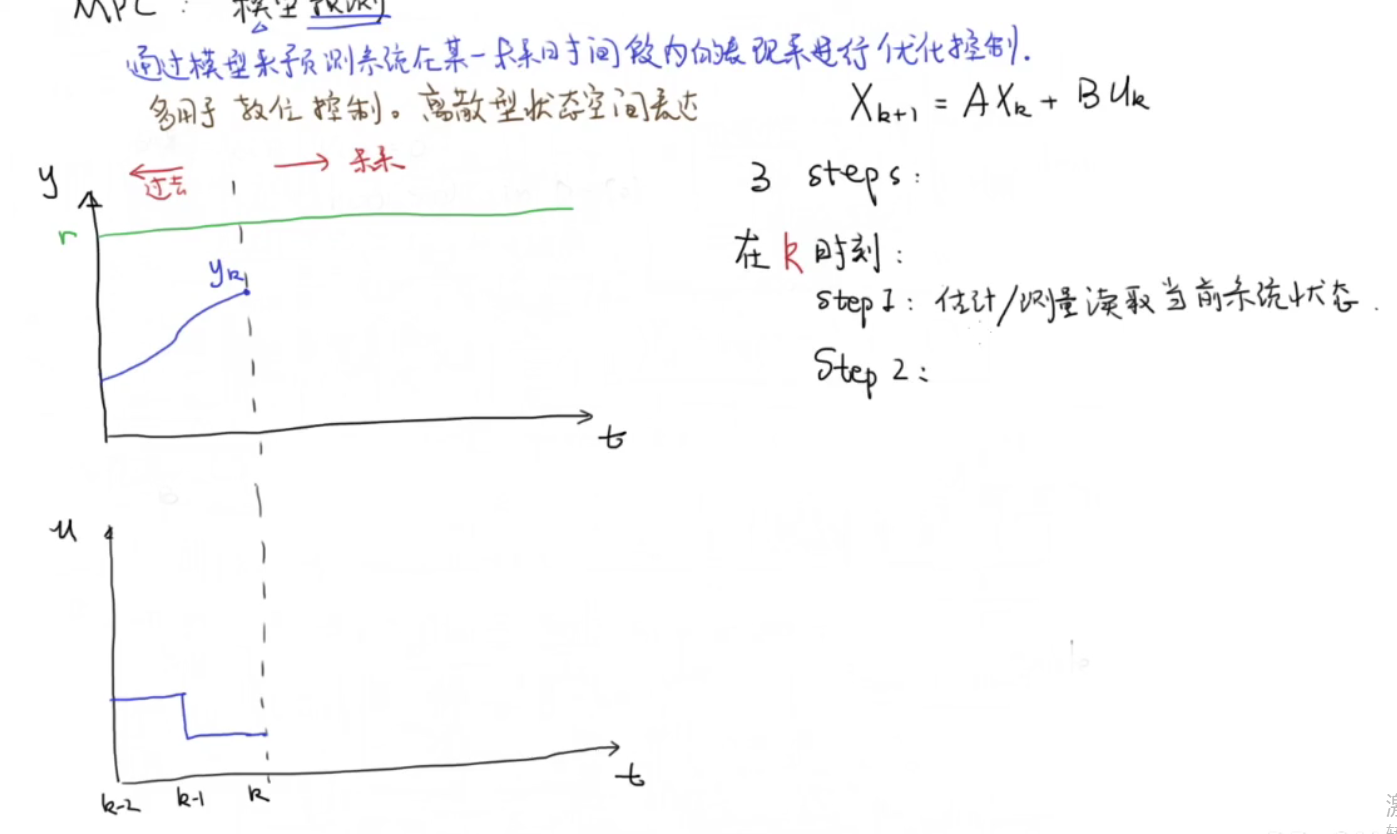 MPC： 模型预测
通过模型来预测系统在某一未来时间段内的表现来进行优化控制.
多用于 数位控制。离散型状态空间表达
X_{k+1} = AX_k + BU_k
过去
未来
y
r
y_k
t
3 steps：
在 k 时刻：
Step 1：估计/测量读取当前系统状态.
Step 2：
u
t
k-2 k-1 k